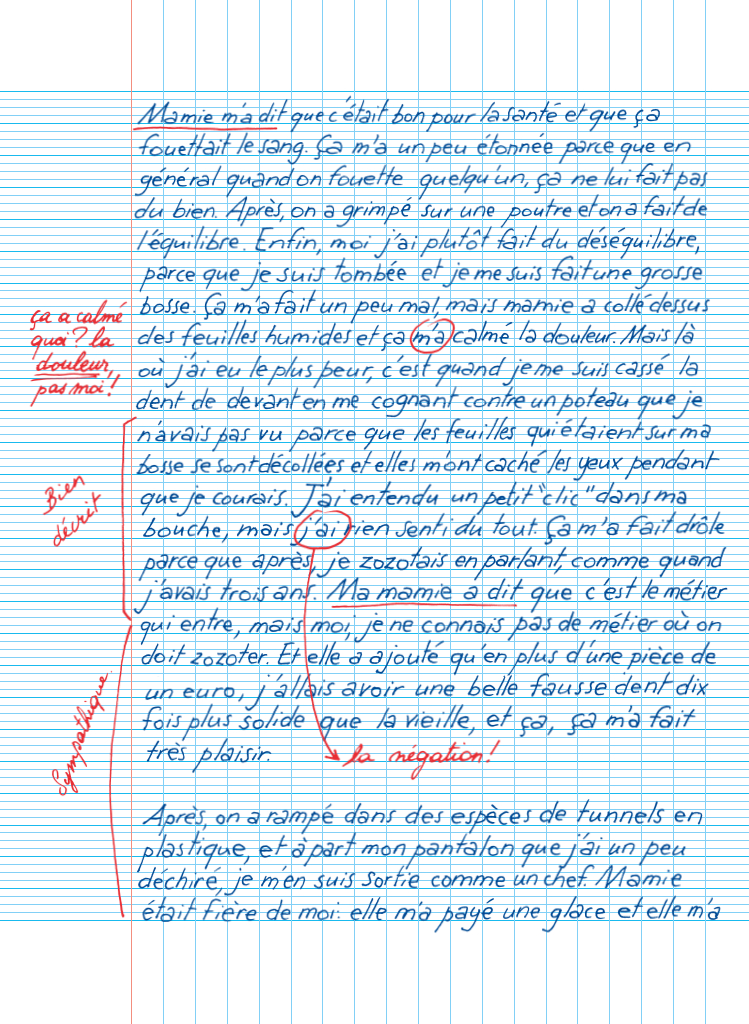 Mamie m'a dit que c'était bon pour la santé et que ça
fouettait le sang. Ça m'a un peu étonnée parce que en
général quand on fouette quelqu'un, ça ne lui fait pas
du bien. Après, on a grimpé sur une poutre et on a fait de
l'équilibre. Enfin, moi j'ai plutôt fait du déséquilibre,
parce que je suis tombée et je me suis fait une grosse
bosse. Ça m'a fait un peu mal, mais mamie a collé dessus
des feuilles humides et ça m'a calmé la douleur. Mais là
où j'ai eu le plus peur, c'est quand je me suis cassé la
dent de devant en me cognant contre un poteau que je
n'avais pas vu parce que les feuilles qui étaient sur ma
bosse se sont décollées et elles m'ont caché les yeux pendant
que je courais. J'ai entendu un petit "clic" dans ma
bouche, mais j'ai rien senti du tout. Ça m'a fait drôle
parce que après, je zozotais en parlant, comme quand
j'avais trois ans. Ma mamie a dit que c'est le métier
qui entre, mais moi, je ne connais pas de métier où on
doit zozoter. Et elle a ajouté qu'en plus d'une pièce de
un euro, j'allais avoir une belle fausse dent dix
fois plus solide que la vieille, et ça, ça m'a fait
très plaisir.
la négation!
Après, on a rampé dans des espèces de tunnels en
plastique, et à part mon pantalon que j'ai un peu
déchiré, je m'en suis sortie comme un chef. Mamie
était fière de moi: elle m'a payé une glace et elle m'a
ça a calmé
quoi? la
douleur,
pas moi!
Bien
décrit
Sympathique.